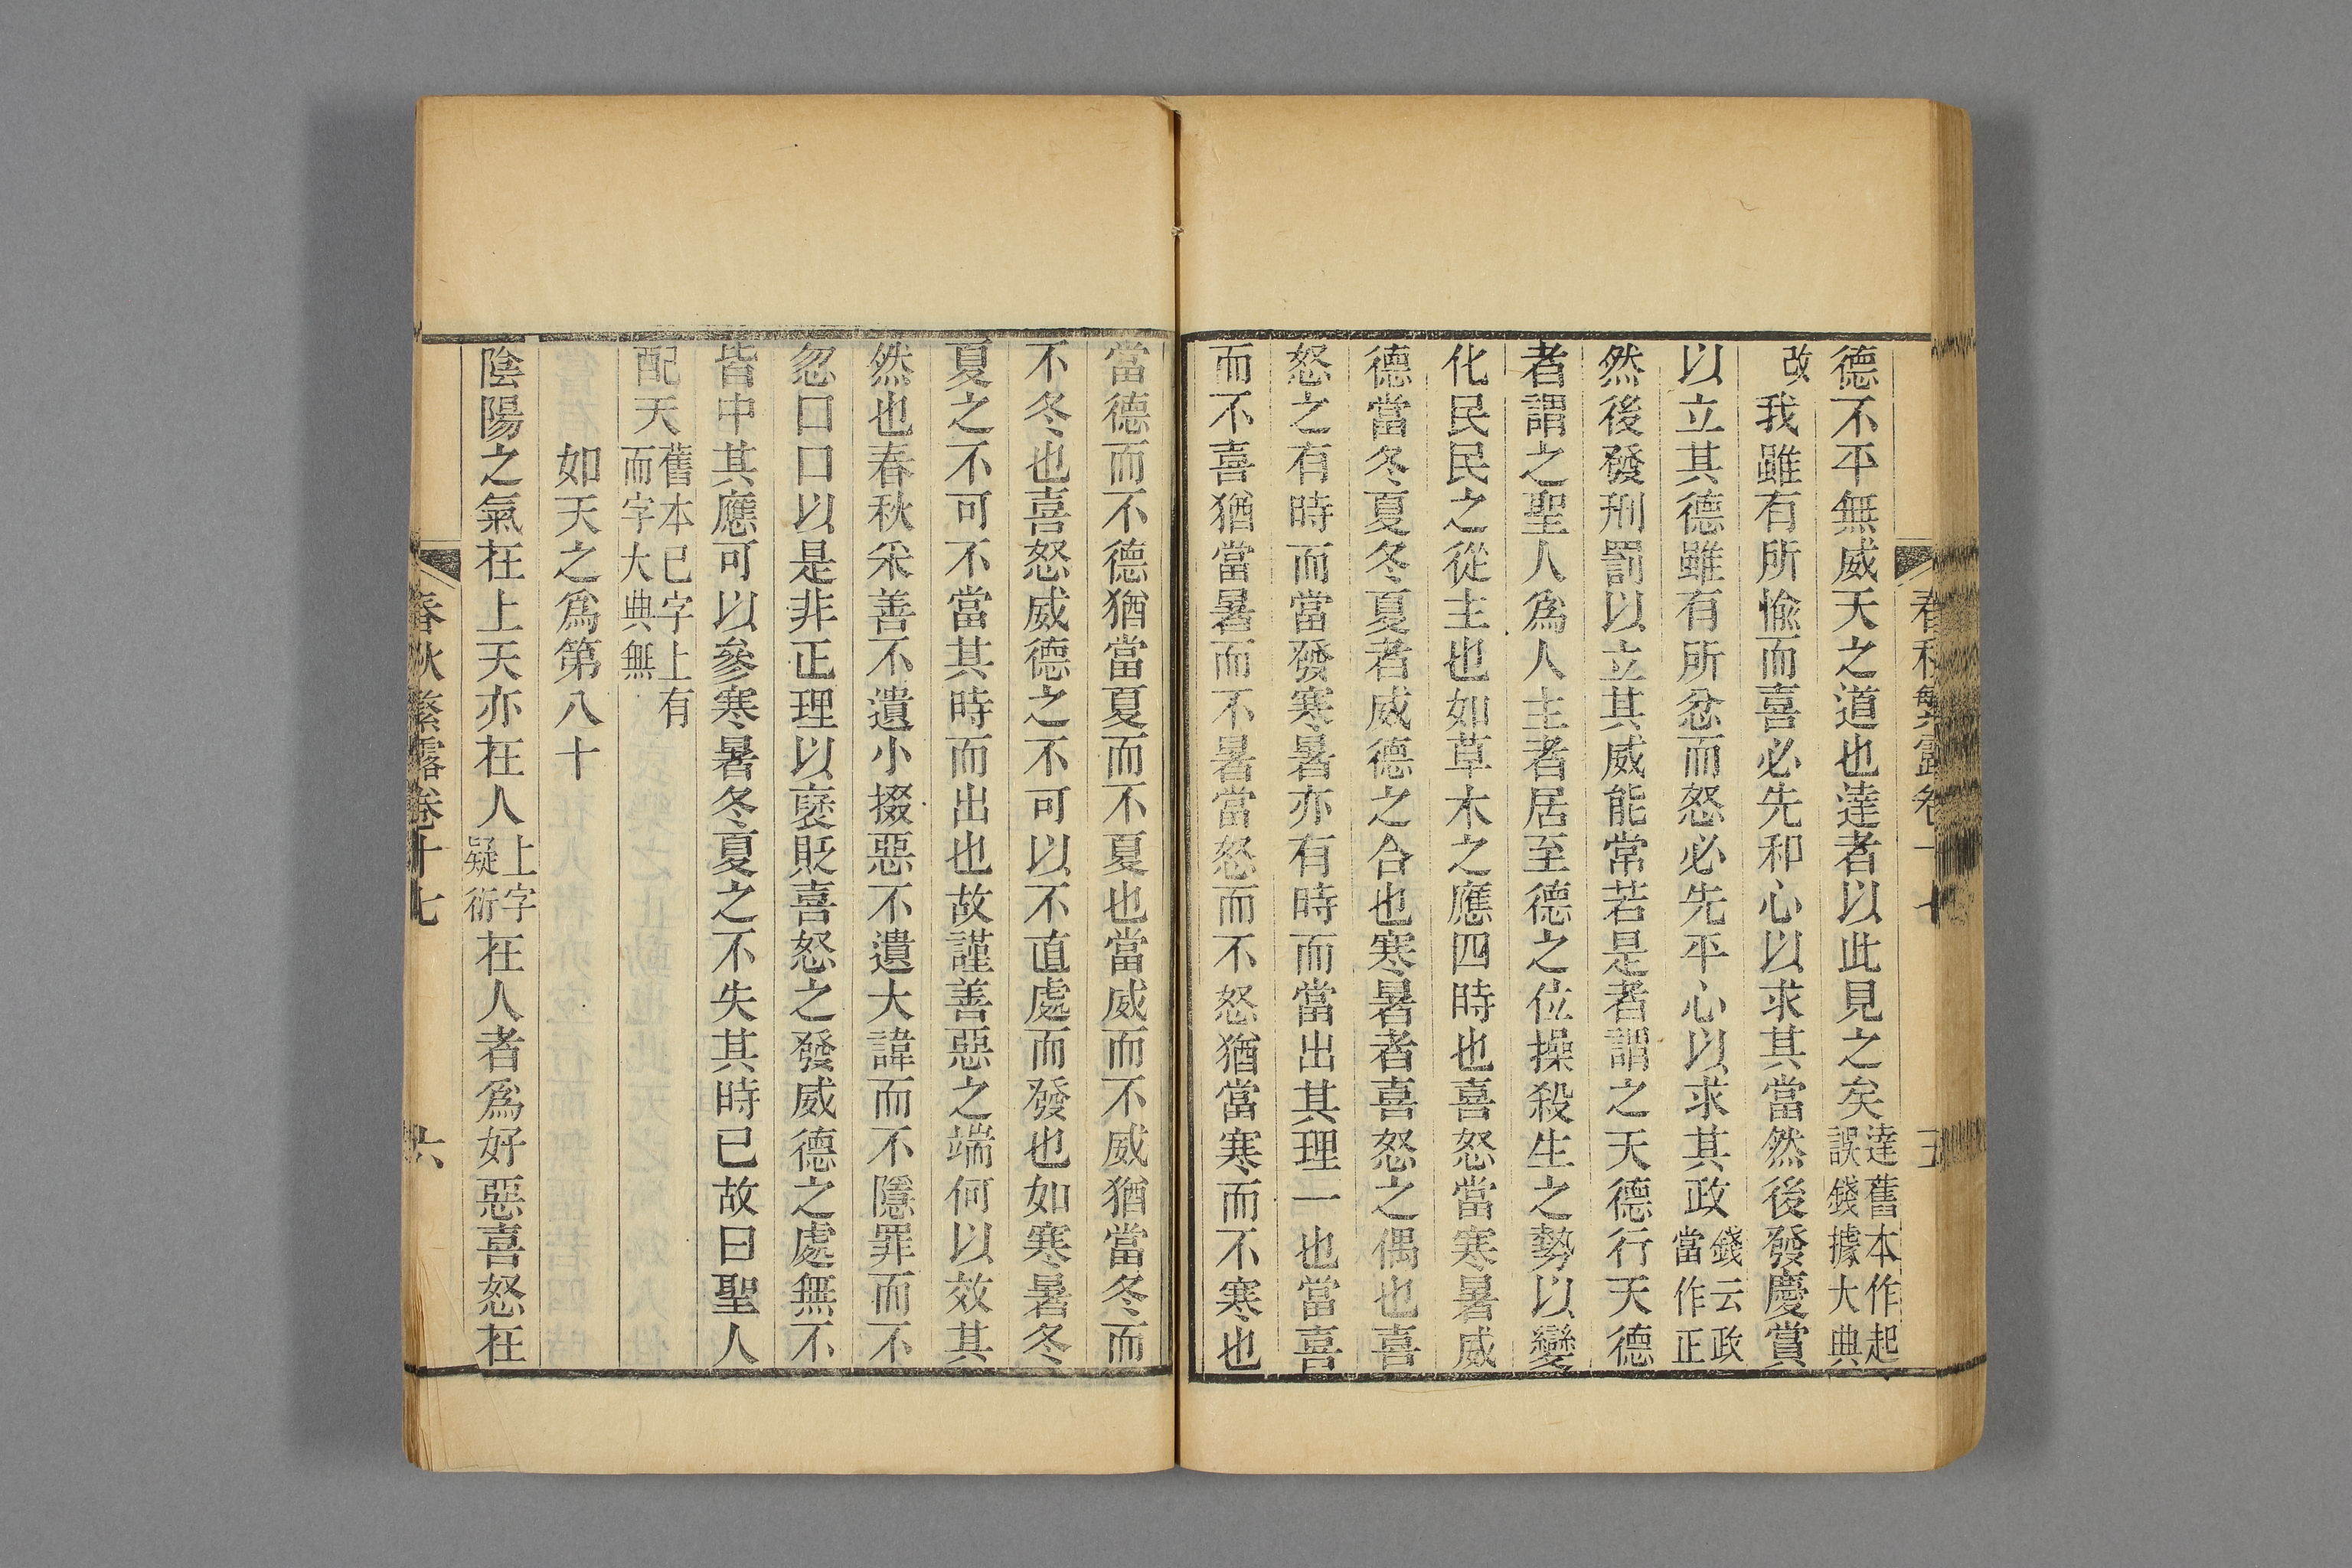 德不平無威天之道也達者以此見之矣達舊本作起誤錢據大典
改我雖有所愉而喜必先和心以求其當然後發慶賞
以立其德雖有所忿而怒必先平心以求其政錢云政當作正
然後發刑罰以立其威能常若是者謂之天德行天德
者謂之聖人爲人主者居至德之位操殺生之勢以變
化民民之從主也如草木之應四時也喜怒當寒暑威
德當冬夏冬夏者威德之合也寒暑者喜怒之偶也喜
怒之有時而當發寒暑亦有時而當出其理一也當喜
而不喜猶當暑而不暑當怒而不怒猶當寒而不寒也
當德而不德猶當夏而不夏也當威而不威猶當冬而
不冬也喜怒威德之不可以不直處而發也如寒暑冬
夏之不可不當其時而出也故謹善惡之端何以效其
然也春秋采善不遺小掇惡不遺大諱而不隱罪而不
忽口口以是非正理以襃貶喜怒之發威德之處無不
皆中其應可以參寒暑冬夏之不失其時已故曰聖人
配天舊本已字上有而字大典無
如天之爲第八十
陰陽之氣在上天亦在人上字疑衍在人者爲好惡喜怒在
春秋繁露卷十七 六